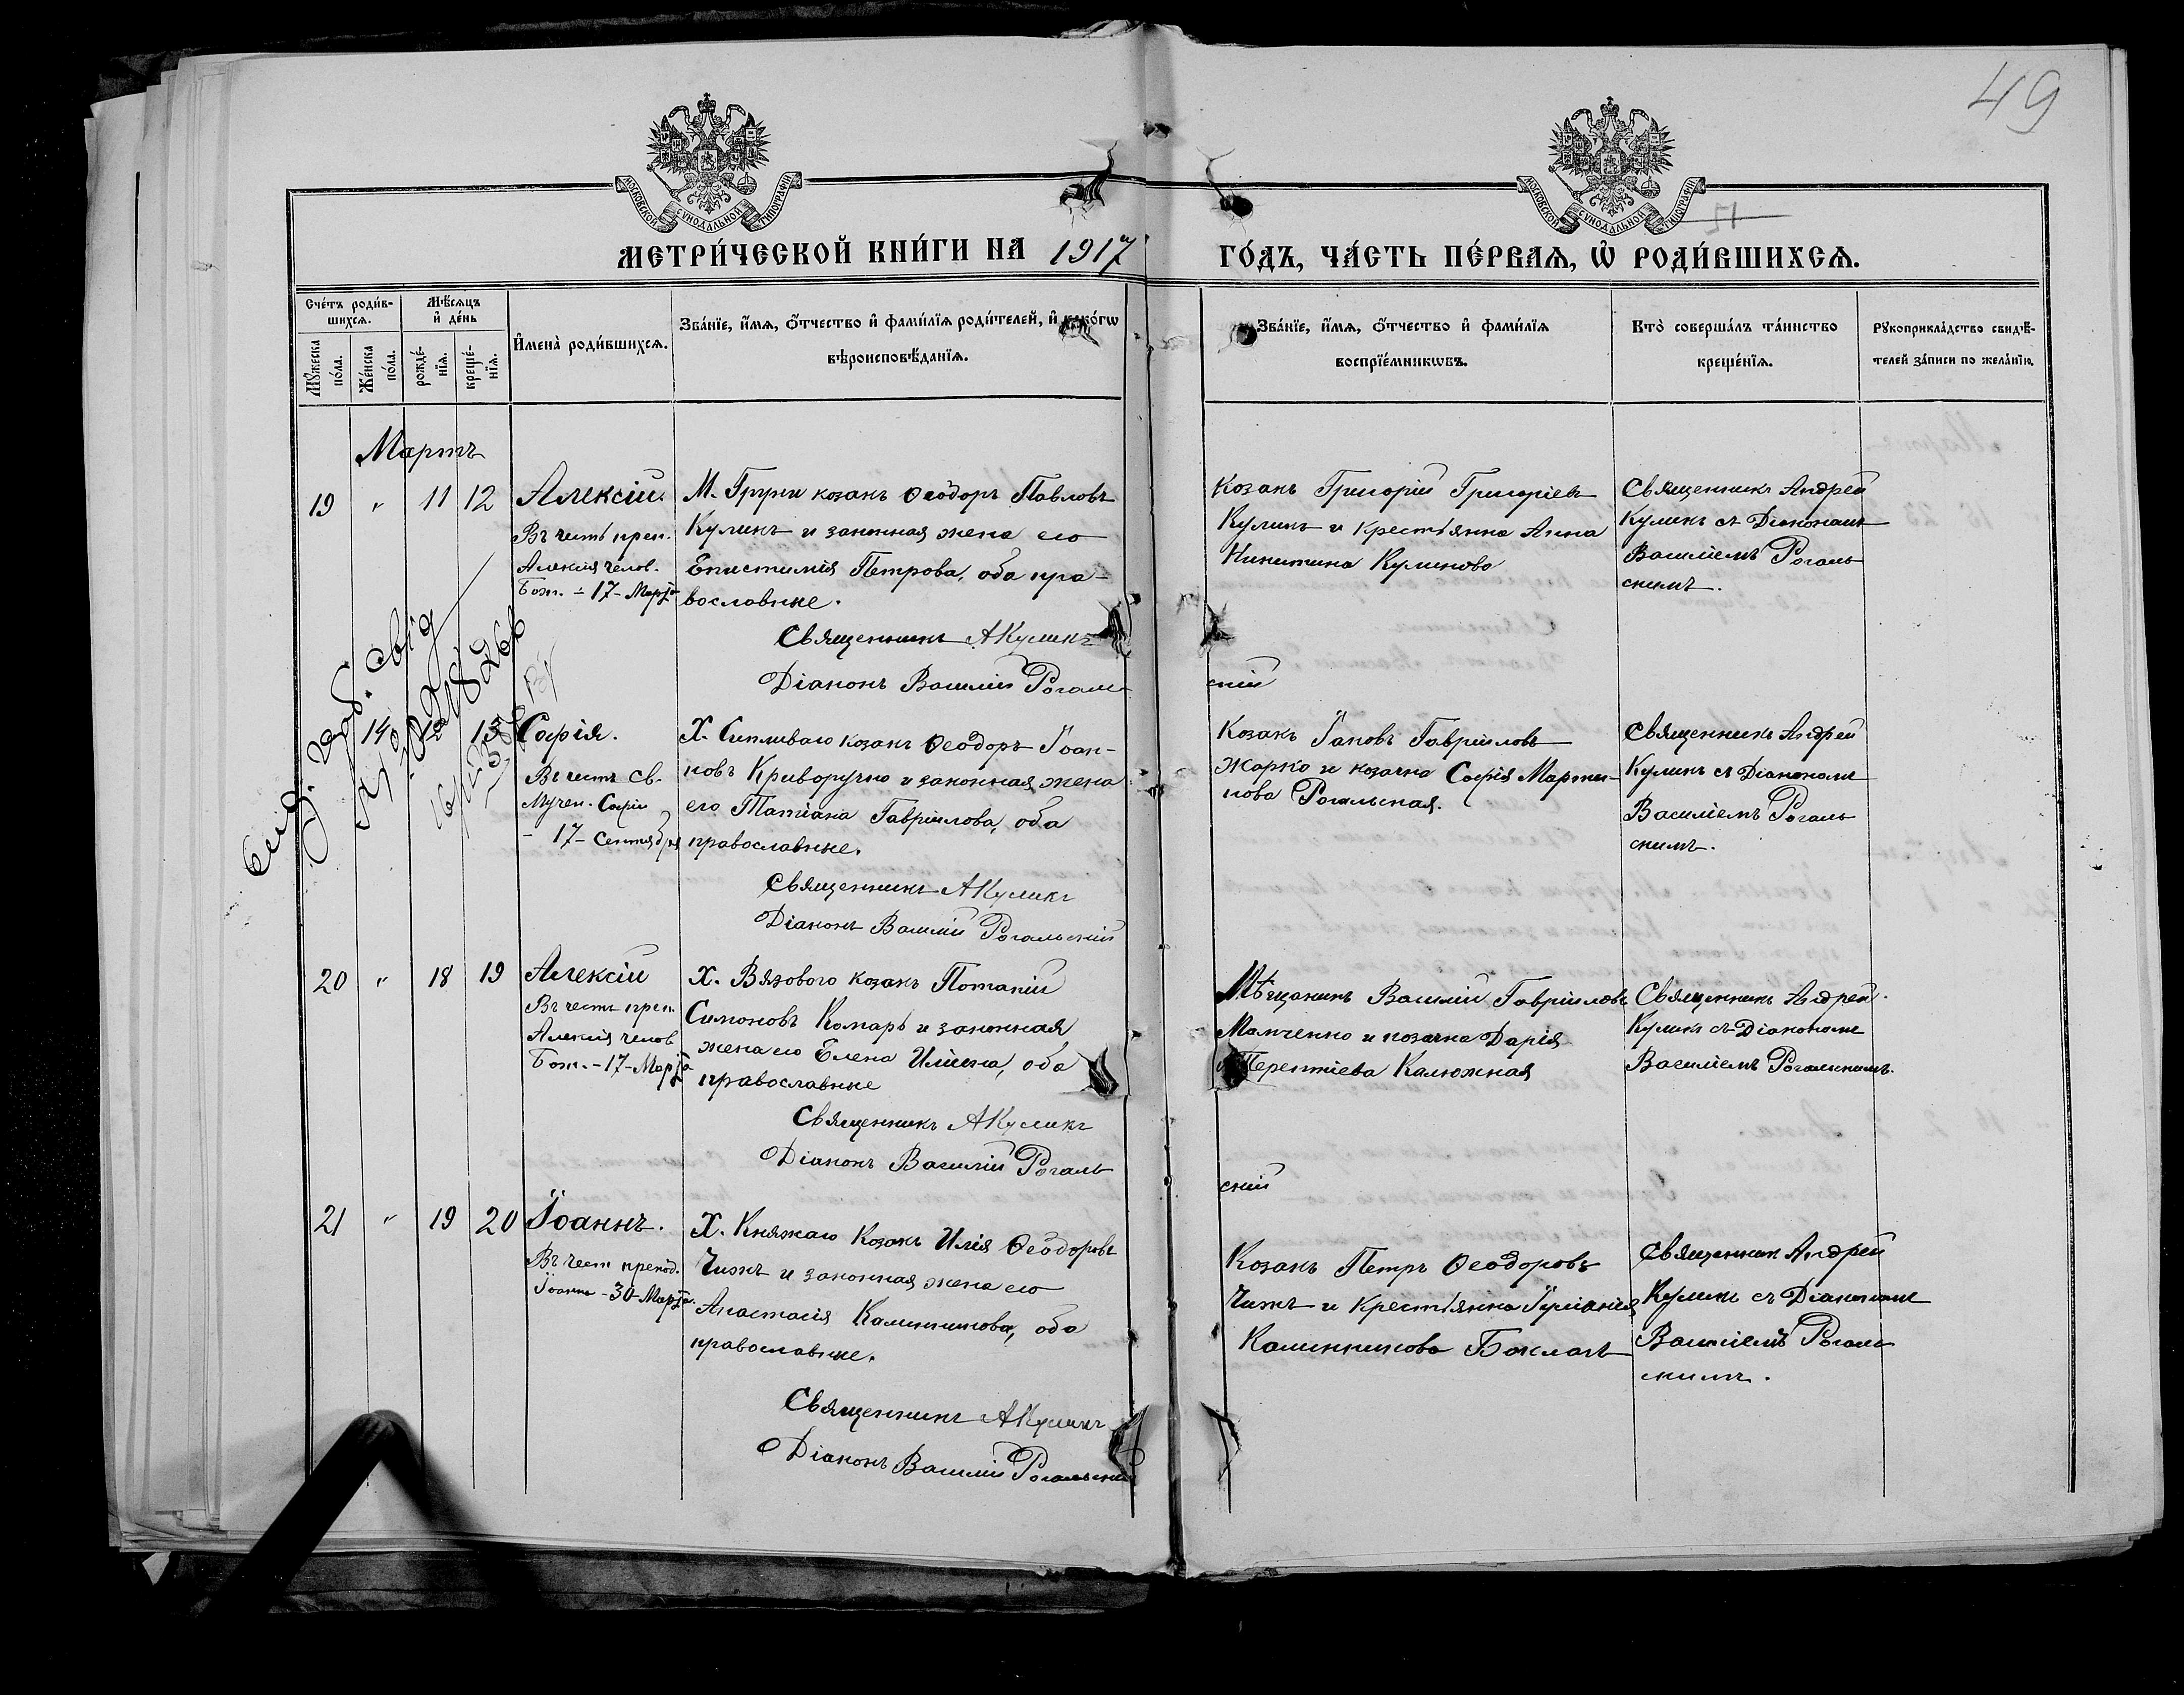 49
МОСКОВСКОЙ СѴНОДАЛЬНОЙ ТИПОГРАФІИ
МОСКОВСКОЙ СѴНОДАЛЬНОЙ ТИПОГРАФІИ
51
МЕТРИ́ЧЕСКОЙ КНИ́ГИ НА 1917 ГО́ДЪ, ЧА́СТЬ ПЕ́РВАѦ, Ѡ҆ РОДИ́ВШИХСѦ.
Сче́тъ роди́в-
шихсѧ.
Мꙋ́жеска
по́ла.
Же́нска
по́ла.
Мѣ́сѧцъ
и҆ де́нь
рожде́-
нїѧ.
креще́-
нїѧ.
И҆мена̀ роди́вшихсѧ.
Зва́нїе, и҆́мѧ, ѻ҆́тчество и҆ фами́лїѧ роди́телей, и҆ како́гѡ
вѣроисповѣ́данїѧ.
Зва́нїе, и҆́мѧ, ѻ҆́тчество и҆ фами́лїѧ
воспрїе́мникѡвъ.
Кто̀ соверша́лъ та́инство
креще́нїѧ.
Рꙋкоприкла́дство свидѣ́-
телей за́писи по жела́нїю.
Мартъ
19 " 11 12
Алексій.
Въ честь преп.
Алексія челов.
Бож. - 17 - Марта
М. Груни козакъ Ѳеодоръ Павловъ
Куликъ и законная жена его
Епистимія Петрова, оба пра-
вославные.
Священникъ А Куликъ
Діаконъ Василій Рогаль-
скій
Козакъ Григорій Григоріевъ
Куликъ и крестьянка Анна
Никитина Куликова
Священникъ Андрей
Куликъ съ Діакономъ
Василіемъ Рогаль
скимъ.
14 12 13
Софія.
Въ честь св.
Мучен. Софіи
- 17 - Сентября
Х. Сипливаго козакъ Ѳеодоръ Іоан-
новъ Криворучко и законная жена
его Татіана Гавріилова, оба
православные.
Священникъ А Куликъ
Діаконъ Василій Рогальскій
Козакъ Іаковъ Гавріиловъ
Жарко и козачка Софія Марти-
нова Рогальская.
Священникъ Андрей
Куликъ съ Діакономъ
Василіемъ Рогаль
скимъ.
20 " 18 19
Алексій
Въ честь преп.
Алексія челов
Бож. - 17 - Марта
Х. Вязового козакъ Потапій
Симоновъ Комаръ и законная
жена его Елена Иліина, оба
православные
Священникъ А Куликъ
Діаконъ Василій Рогаль
скій
Мѣщанинъ Василій Гавріиловъ
Мамченко и козачка Дарія
Терентіева Калюжная
Священникъ Андрей
Куликъ съ Діакономъ
Василіемъ Рогальскимъ.
21 " 19 20
Іоаннъ.
Въ честь препод.
Іоанна - 30 - Марта.
Х. Княжаго козакъ Илія Ѳеодоровъ
Чижъ и законная жена его
Анастасія Калинникова, оба
православные.
Священникъ А Куликъ
Діаконъ Василій Рогальскій
Козакъ Петръ Ѳеодоровъ
Чижъ и крестьянка Іуліанія
Калинникова Баклагъ
Священникъ Андрей
Куликъ съ Діакономъ
Василіемъ Рогаль
скимъ.